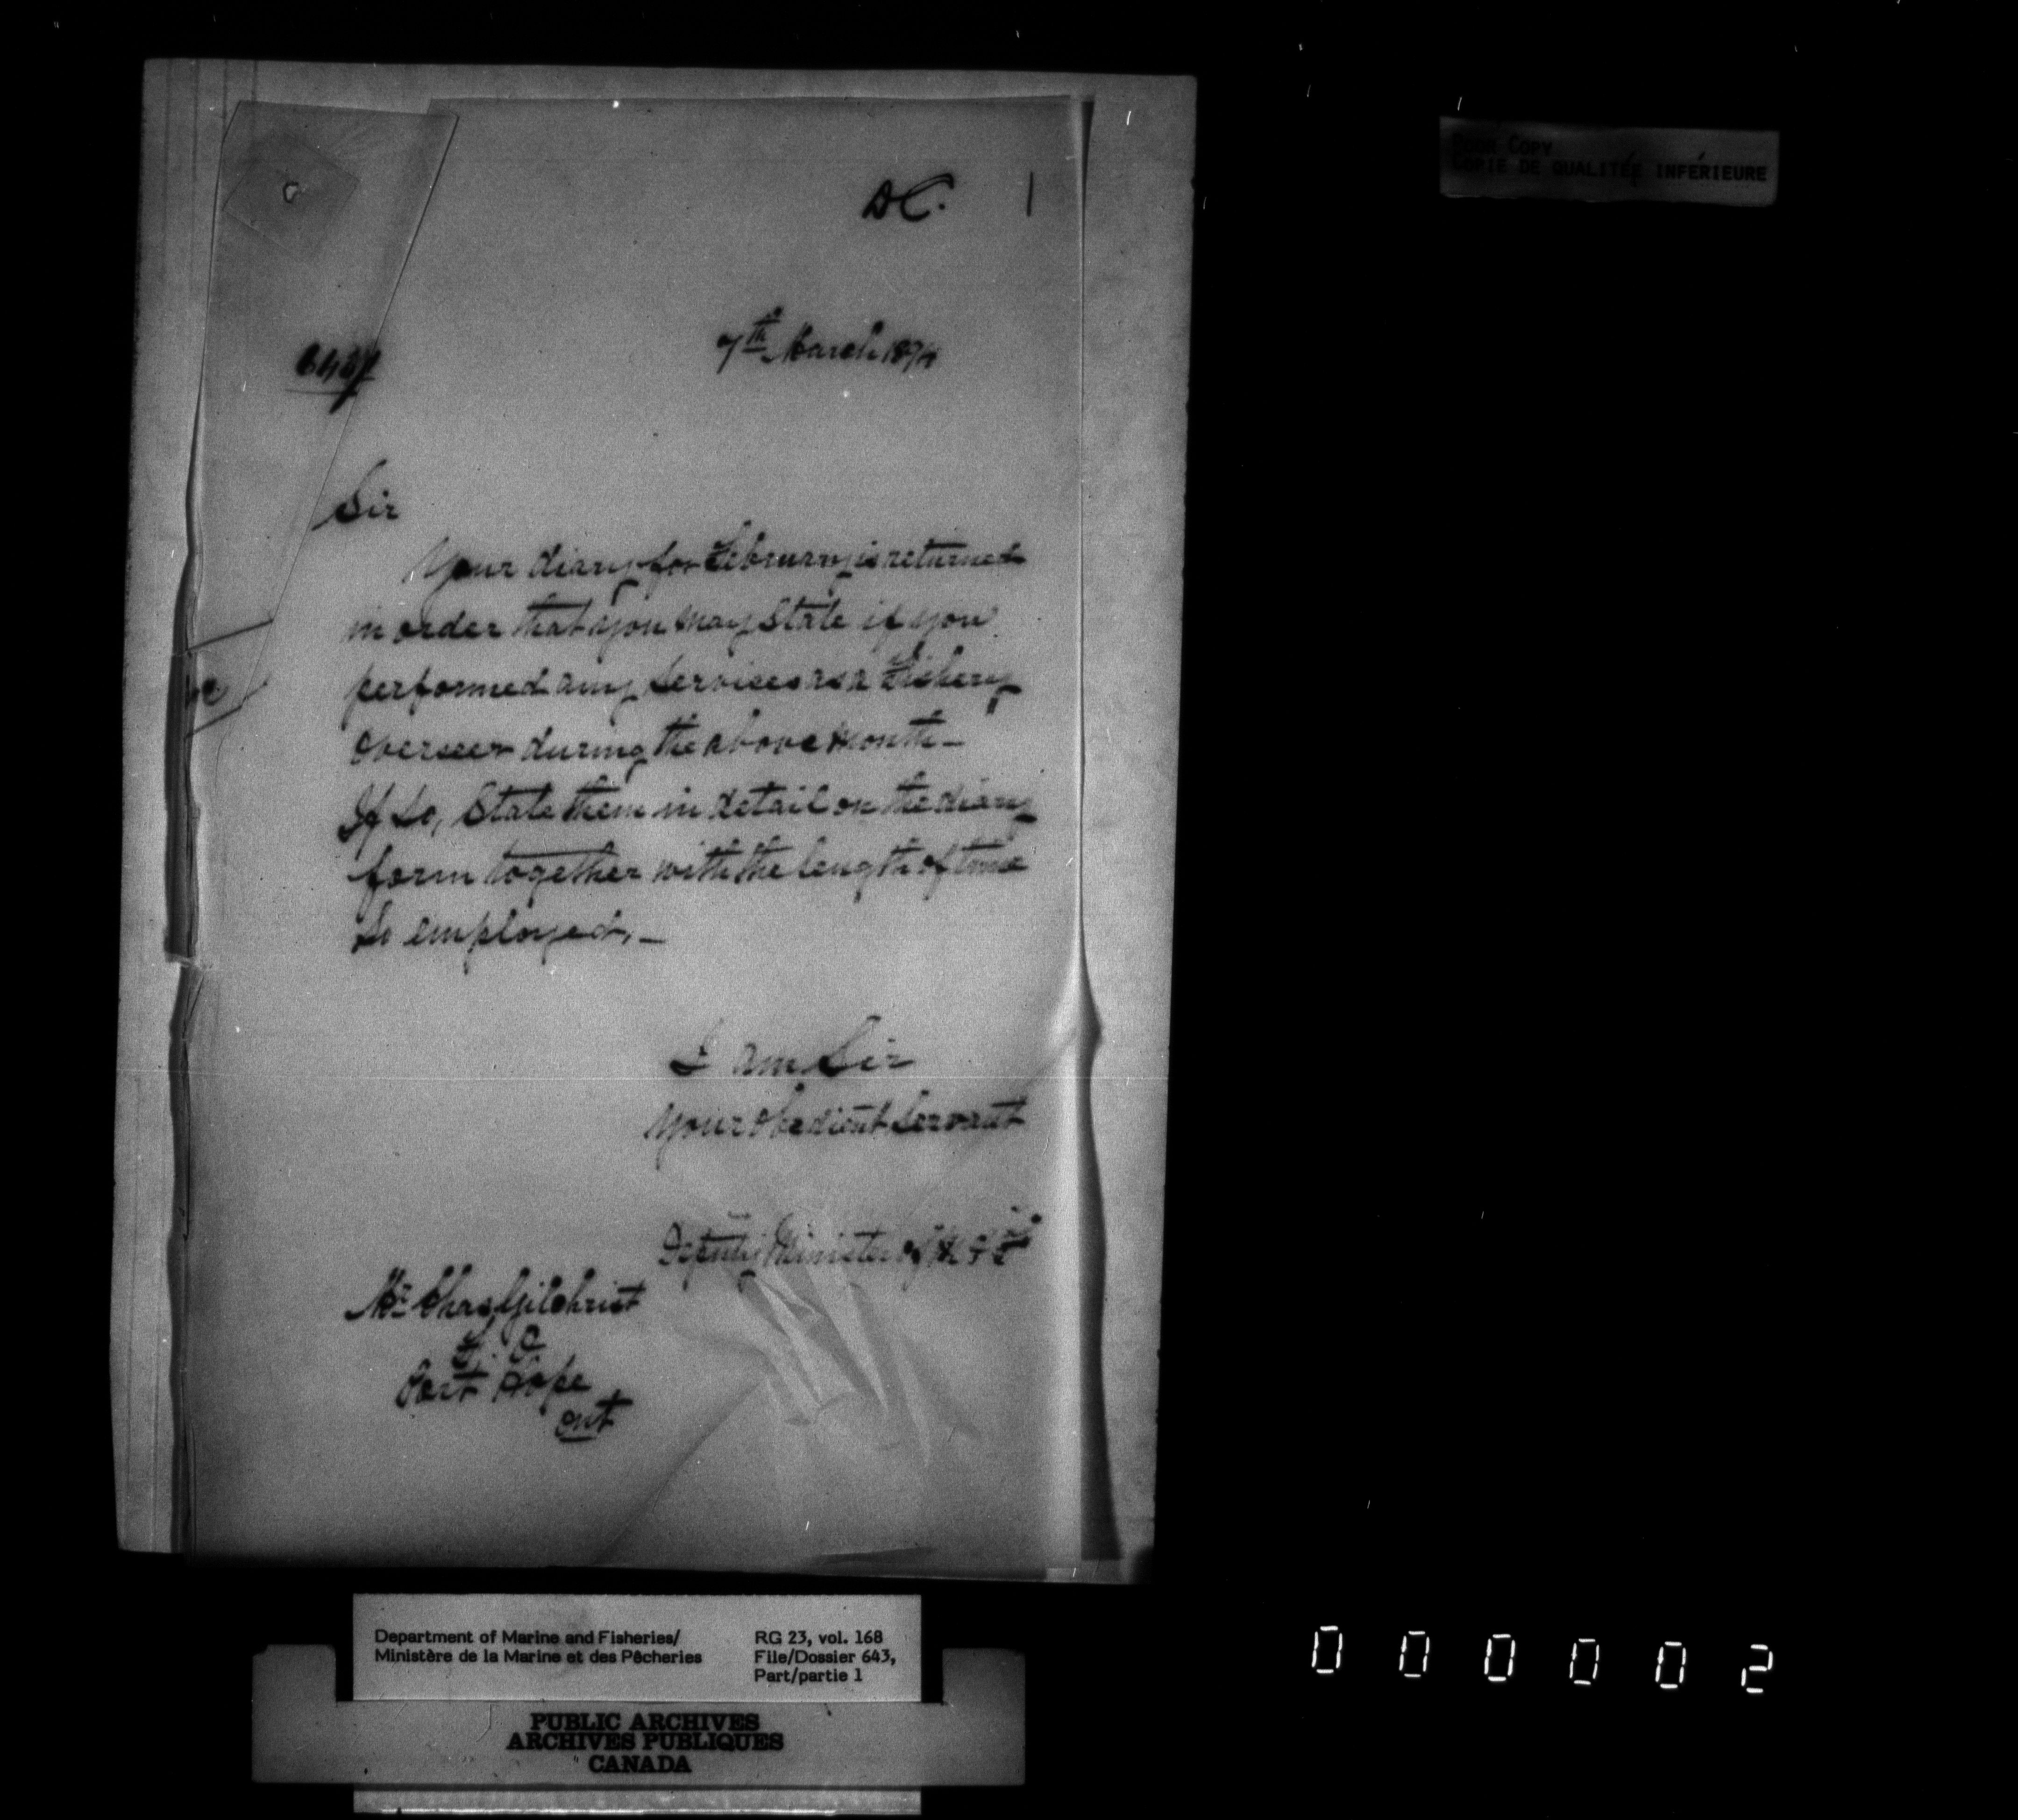 DC. 1
7th March 1894
Sir
Your diary for February is returned
in order that you may State if you
performed any Services as a Fishery
Overseer during the above month_
If So, State them in detail on the diary
form together with the length of time
So employed._
I am Sir
Your obedient Servant
Deputy Minister of M & F
Mr Chas Gilchrist
F. O
Port Hope
Ont
POOR COPY
COPIE DE QUALITÉE INFÉRIEURE
Department of Marine and Fisheries/
Ministère de la Marine et des Pêcheries
RG 23, vol. 168
File/Dossier 643,
Part/partie 1
PUBLIC ARCHIVES
ARCHIVES PUBLIQUES
CANADA
000002